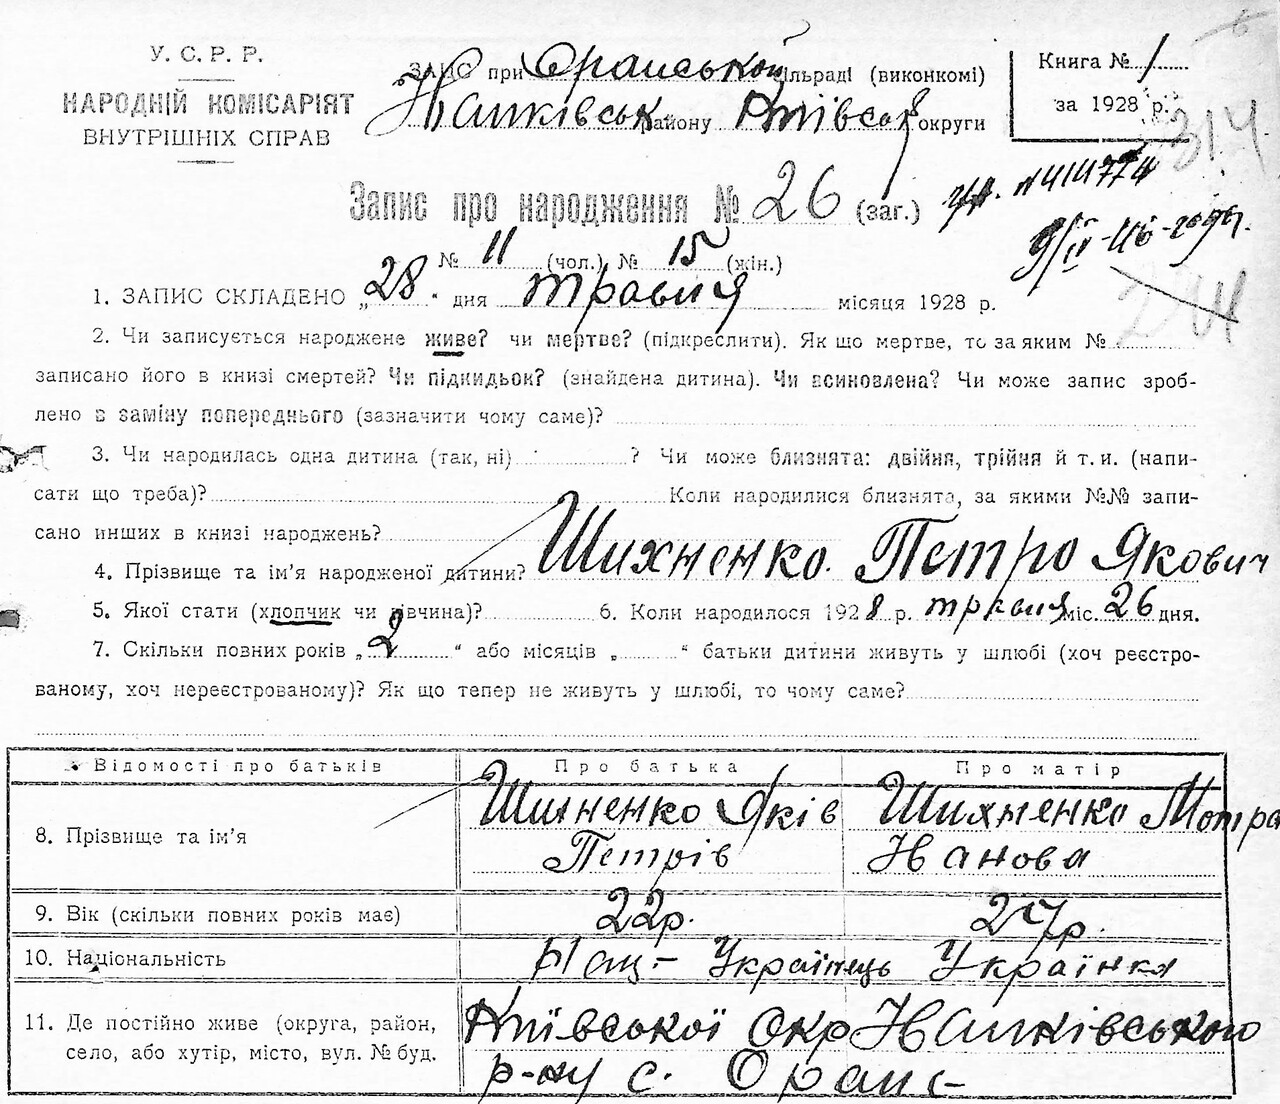 У. С. Р. Р.
НАРОДНІЙ КОМІСАРІЯТ
ВНУТРІШНІХ СПРАВ
ЗАГС при Оранській сільраді (виконкомі)
району Київськ округи
Книга № 1
за 1928 р.
314
Запис про народження № 26 (заг.)
№ 11 (чол.) № 15 (жін.)
1. ЗАПИС СКЛАДЕНО „28“ дня травня місяця 1928 р.
2. Чи записується народжене живе? чи мертве? (підкреслити). Як що мертве, то за яким №
записано його в книзі смертей? Чи підкидьок? (знайдена дитина). Чи всиновлена? Чи може запис зроб-
лено в заміну попереднього (зазначити чому саме)?
3. Чи народилась одна дитина (так, ні) ? Чи може близнята: двійня, трійня й т. и. (напи-
сати що треба)? Коли народилися близнята, за якими №№ запи-
сано инших в книзі народжень?
4. Прізвище та ім’я народженої дитини? Шихненко Петро Якович
5. Якої стати (хлопчик чи дівчина)? 6. Коли народилося 1928 р. травня міс. 26 дня.
7. Скільки повних років „2“ або місяців „ “ батьки дитини живуть у шлюбі (хоч реєстро-
ваному, хоч нереєстрованому)? Як що тепер не живуть у шлюбі, то чому саме?
Відомості про батьків Про батька Про матір
8. Прізвище та ім’я Шихненко Яків Шихненко Мотра
Петрів Іванова
9. Вік (скільки повних років має) 22р. 27р.
10. Національність Українець Українка
11. Де постійно живе (округа, район,
село, або хутір, місто, вул. № буд.
Київської окр
р-ну с. Оране